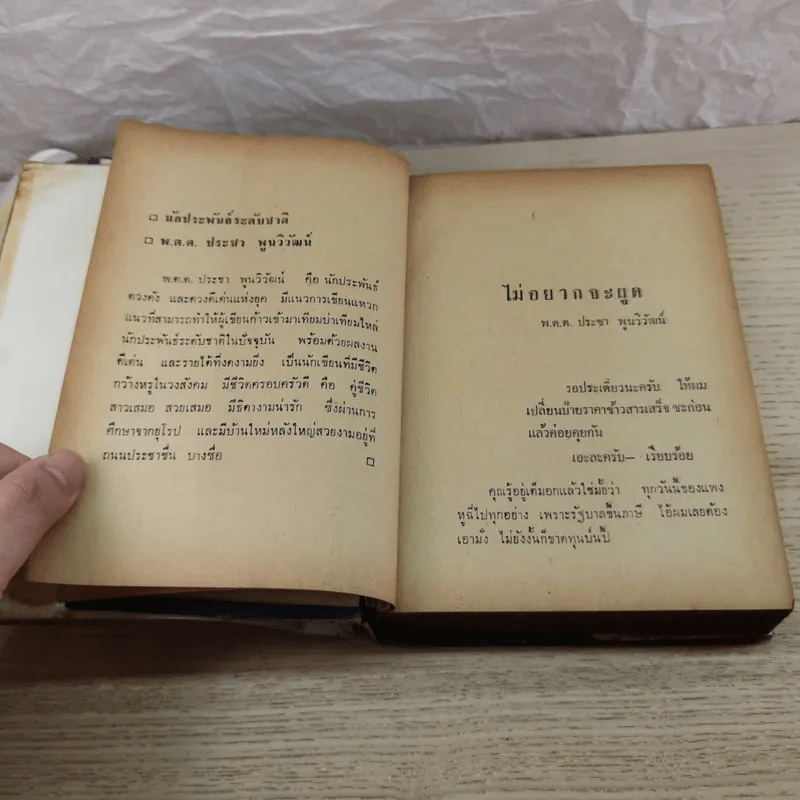 □ นักประพันธ์ระดับชาติ
□ พ.ต.ต. ประชา พูนวิวัฒน์
พ.ต.ต. ประชา พูนวิวัฒน์ คือ นักประพันธ์
ดวงดัง และดวงดีเด่นแห่งยุค มีแนวการเขียนแหวก
แนวที่สามารถทำให้ผู้เขียนก้าวเข้ามาเทียมบ่าเทียมไหล่
นักประพันธ์ระดับชาติในปัจจุบัน พร้อมด้วยผลงาน
ดีเด่น และรายได้ที่งดงามยิ่ง เป็นนักเขียนที่มีชีวิต
กว้างหรูในวงสังคม มีชีวิตครอบครัวดี คือ คู่ชีวิต
สาวเสมอ สวยเสมอ มีธิดางามน่ารัก ซึ่งผ่านการ
ศึกษาจากยุโรป และมีบ้านใหม่หลังใหญ่สวยงามอยู่ที่
ถนนประชาชื่น บางซื่อ □
ไม่อยากจะพูด
พ.ต.ต. ประชา พูนวิวัฒน์
รอประเดี๋ยวนะครับ ให้ผม
เปลี่ยนป้ายราคาข้าวสารเสร็จซะก่อน
แล้วค่อยคุยกัน
เอะละครับ— เรียบร้อย
คุณรู้อยู่เต็มอกแล้วใช่มั้ยว่า ทุกวันนี้ของแพง
หูฉี่ไปทุกอย่าง เพราะรัฐบาลขึ้นภาษี ไอ้ผมเลยต้อง
เอามั่ง ไม่ยังงั้นก็ขาดทุนป่นปี้